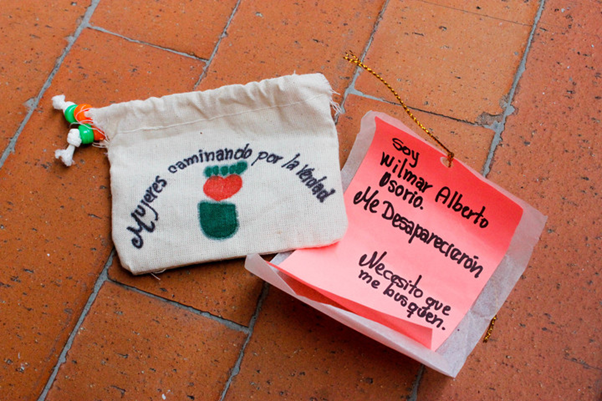 Mujeres caminando por la Verdad
Soy
Wilmar Alberto
Osorio.
Me Desaparecierón
Necesito que
me busquen.